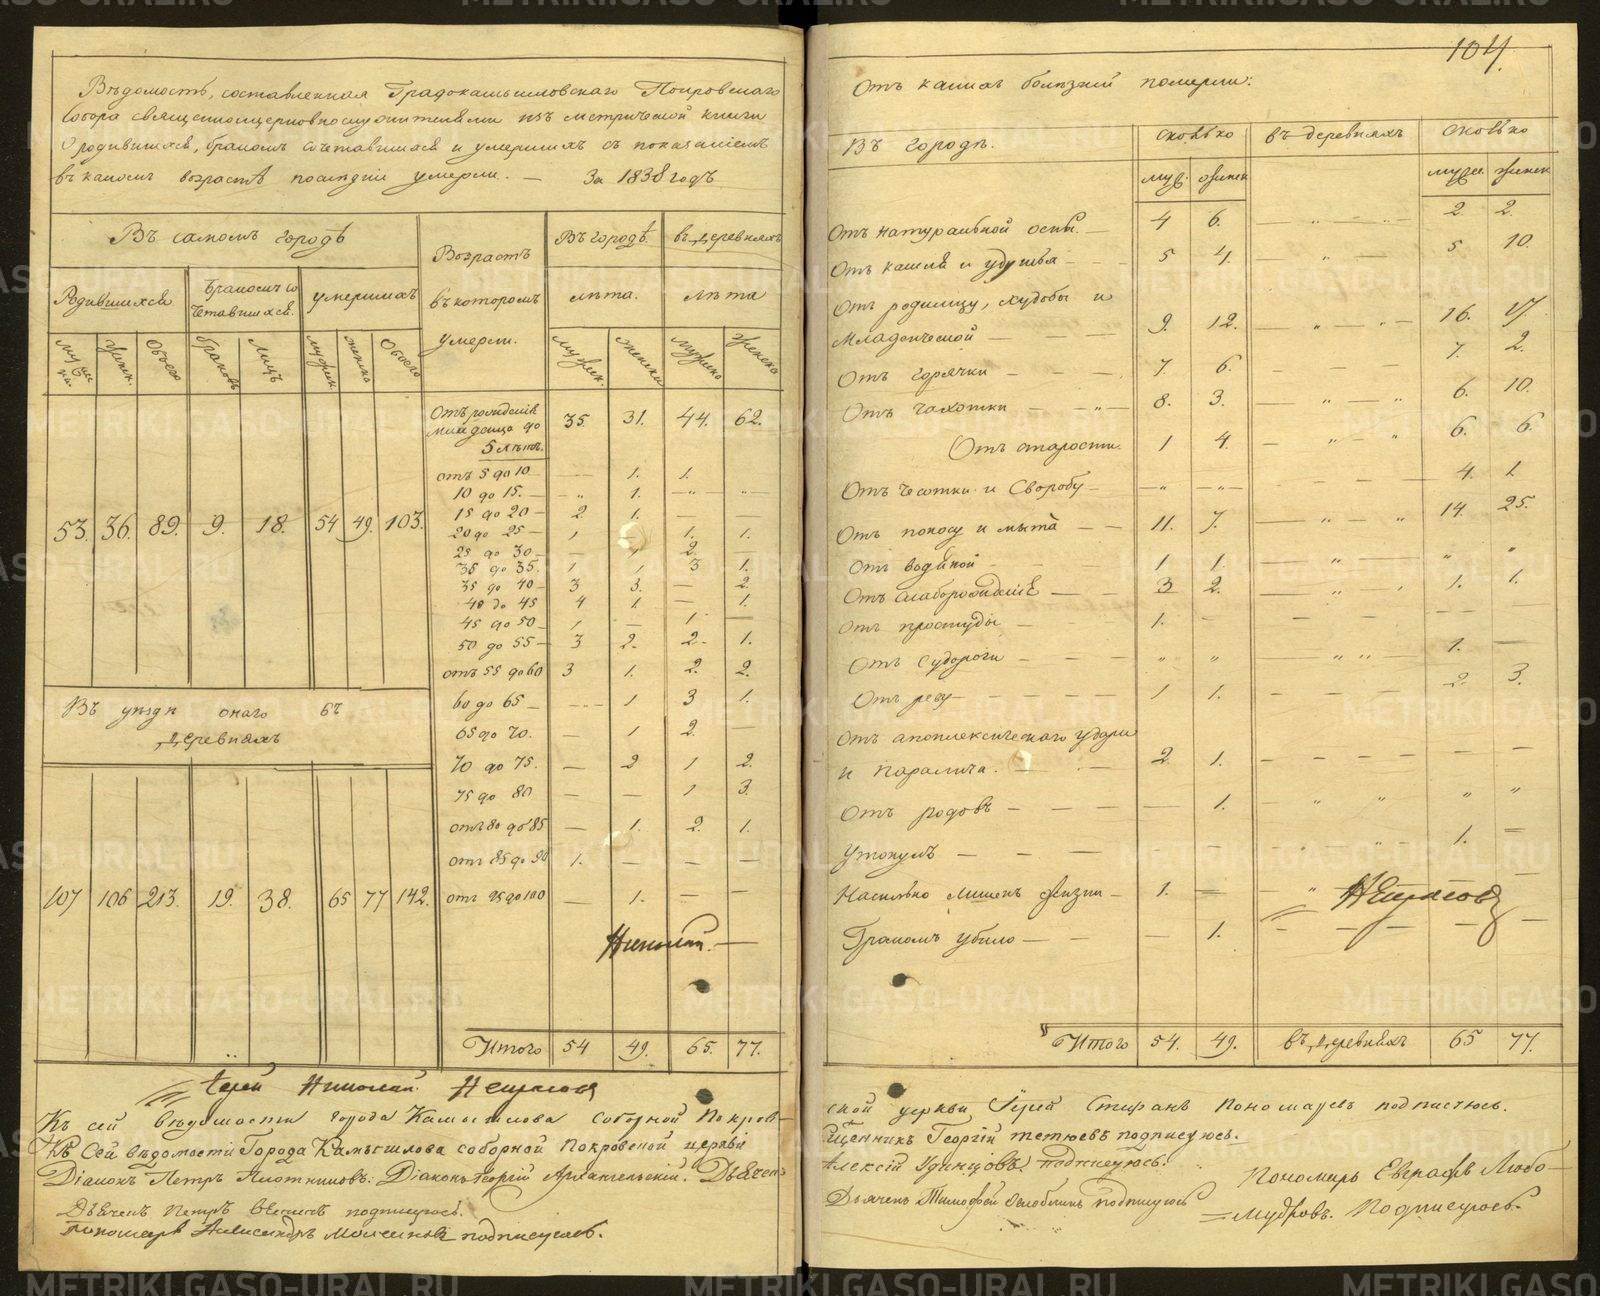 Вѣдомость, составленная Градокамышловскаго Покровскаго
Собора священноцерковнослужителями изъ метрической книги
О родившихся, бракомъ сочетавшихся и умершихъ съ показаніемъ
въ какомъ возрастѣ последніи умерли. — За 1838 годъ
Въ самомъ городѣ
Родившихся
Бракомъ со
четавшихся.
умершихъ
Возрастъ
въ которомъ
умерли.
Въ городѣ.
въ деревняхъ
лѣта.
лѣта
женск.
Обоего
браковъ
Лицъ
мужск.
женско
Обоего
мужск.
женски
мужско
женско
53. 36. 89. 9. 18. 54 49. 103.
Отъ рожденія
младенца до
5 лѣтъ. 35. 31. 44. 62.
отъ 5 до 10 — 1. 1.
10 до 15. — „ 1. — „ — „ —
15 до 20 — 2 1. —
20 до 25 — 1 — 1. 1.
25 до 30 — — 1 2.
35 до 35. 1 1 3 1.
35 до 40 — 3 3. — 2.
40 до 45 4 1. — 1.
45 до 50 — 1 — 1 —
50 до 55 — 3 2. 2. 1.
отъ 55 до 60 3 1. 2. 2.
60 до 65 — — 1 3 1.
65 до 70. — 1 2.
70 до 75. — 2 1 2.
75 до 80 — — 1 3.
отъ 80 до 85 — 1. 2. 1.
отъ 85 до 90 1. — — —
отъ 95 до 100 — 1. — —
Въ уѣздѣ онаго въ
деревняхъ
107 106 213. 19. 38. 65 77 142.
Николай. —
Итого 54 49. 65. 77.
Іерей Николай Некрасовъ
Къ сей вѣдомости города Камышлова соборной Покров-
Къ Сей вѣдомости Города Камышлова соборной Покровской церкви
Діаконъ Петръ Плотниковъ. Діаконъ Георгій Архангельскій. Дьячек
Дьячекъ Петръ подписуюсь.
Пономарь Александръ подписуюсь.
104.
Отъ какихъ болѣзней померли:
Въ городѣ.
сколько
въ деревняхъ
сколько
муж. женск
мужск. женск
Отъ натуральной оспы. — 4 6. — „ — „ — 2 2.
Отъ кашля и удушья — 5 4. — „ — 5 10.
Отъ родимцу, худобы и
Младенческой — — — 9. 12. — „ — „ — 16. 17.
Отъ горячки — — — 7. 6. — — — 7. 2.
Отъ чахотки — — „ — 8. 3. — „ — „ 6. 10.
Отъ старости. 1 4. — „ „ 6. 6.
Отъ чесотки и Своробу — — „ — — „ — — — 4. 1.
Отъ поносу и мыта — — 11. 7. — „ — „ 14 25.
Отъ водяной — — 1 1. — „ — „ „
Отъ слаборожденія — — 3 2. — „ — , 1. 1.
Отъ простуды — — — 1. — — — —
Отъ судороги — — — „ „ — „ „ 1. —
Отъ резу — — — 1 1. — — — 2. 3.
Отъ апоплексическаго удара
и паралича. — — 2. 1. — — — —
Отъ родовъ — — — — 1. — „ „ „ „
Утонулъ — — — — „ 1. —
Насильно лишенъ жизни — 1. — — „
Некрасовъ
Громомъ убило — — — 1. — — — —
Итого 54. 49. въ деревняхъ 65 77.
ской церкви Іерей Стефанъ Пономаревъ подписуюсь.
Священникъ Георгій тетюевъ подписуюсь.
Алексій Удинцовъ подписуюсь.
Пономарь Евграфъ Любо-
Дьячекъ Тимофей подписуюсь
= мудровъ. Подписуюсь.
METRIKI.GASO-URAL.RU